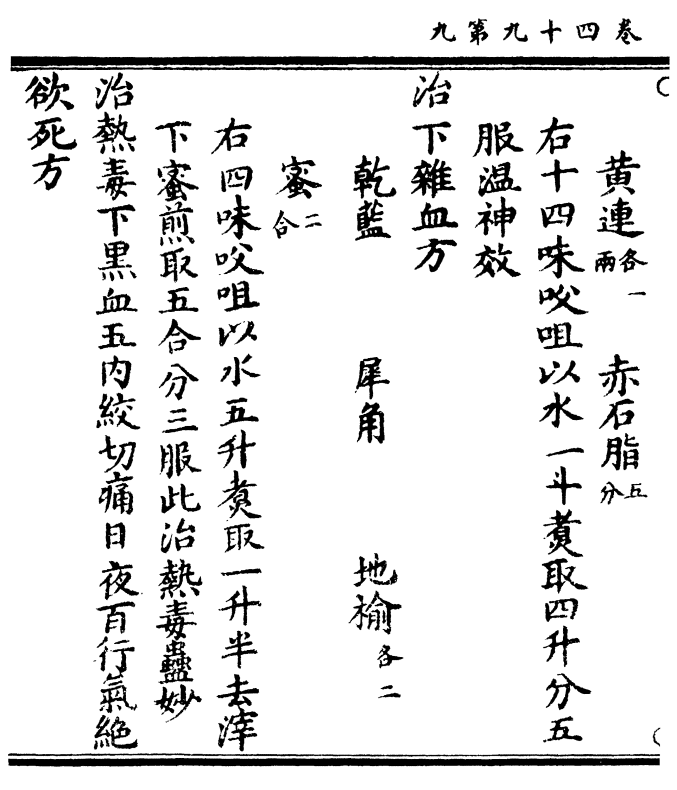 卷四十九第九
黄連各一兩 赤石脂五分
右十四味㕮咀以水一斗煑取四升分五
服温神效
治下雜血方
乾藍 犀角 地榆各二
蜜二合
右四味㕮咀以水五升煑取一升半去滓
下蜜煎取五合分三服此治熱毒蠱妙
治熱毒下黒血五内絞切痛日夜百行氣絶
欲死方